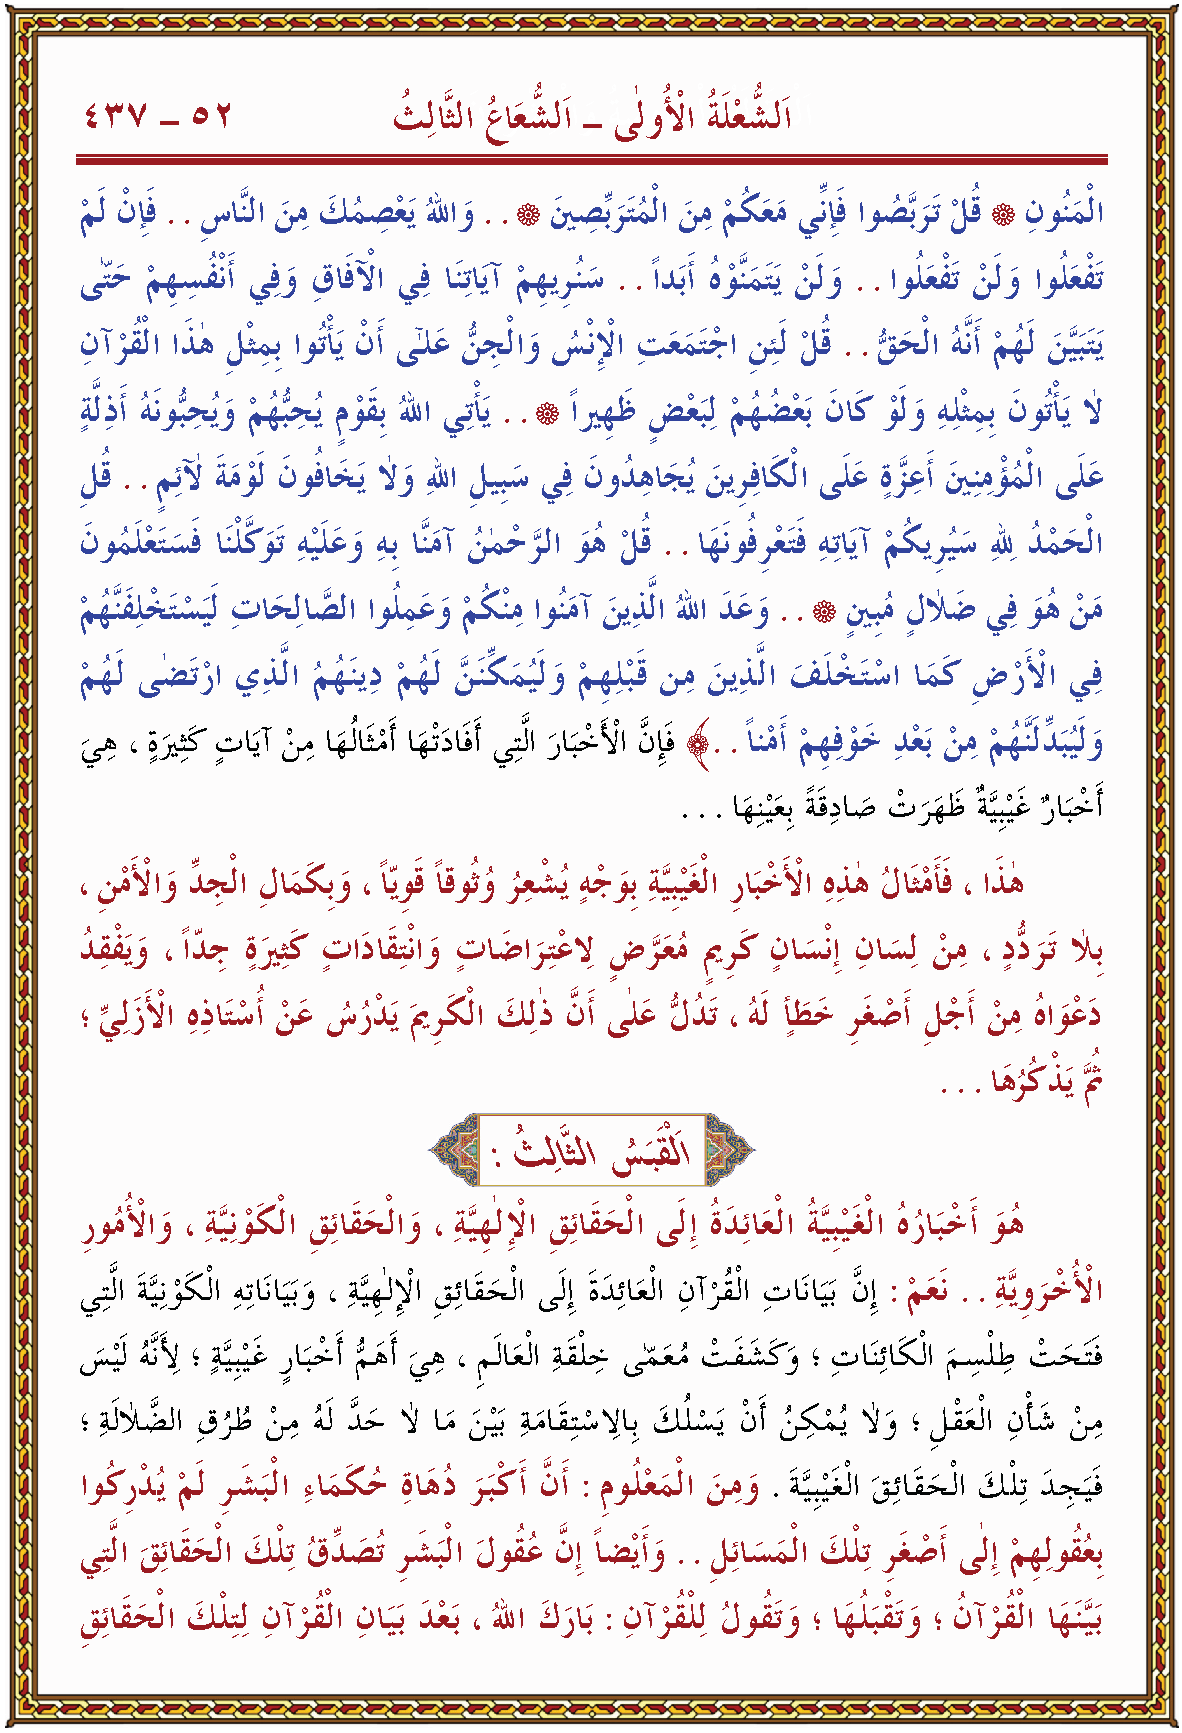 اَلشُّعْلَةُ الْأُولٰى ــ اَلشُّعَاعُ الثَّالِثُ ٥٢ ــ ٤٣٧
الْمَنُونِ ۞ قُلْ تَرَبَّصُوا فَإِنِّي مَعَكُمْ مِنَ الْمُتَرَبِّصِينَ ۞ . . وَاللهُ يَعْصِمُكَ مِنَ النَّاسِ . . فَإِنْ لَمْ
تَفْعَلُوا وَلَنْ تَفْعَلُوا . . وَلَنْ يَتَمَنَّوْهُ أَبَداً . . سَنُرِيهِمْ آيَاتِنَا فِي الْآفَاقِ وَفِي أَنْفُسِهِمْ حَتّٰى
يَتَبَيَّنَ لَهُمْ أَنَّهُ الْحَقُّ . . قُلْ لَئِنِ اجْتَمَعَتِ الْإِنْسُ وَالْجِنُّ عَلٰى أَنْ يَأْتُوا بِمِثْلِ هٰذَا الْقُرْآنِ
لَا يَأْتُونَ بِمِثْلِهِ وَلَوْ كَانَ بَعْضُهُمْ لِبَعْضٍ ظَهِيراً ۞ . . يَأْتِي اللهُ بِقَوْمٍ يُحِبُّهُمْ وَيُحِبُّونَهُ أَذِلَّةٍ
عَلَى الْمُؤْمِنِينَ أَعِزَّةٍ عَلَى الْكَافِرِينَ يُجَاهِدُونَ فِي سَبِيلِ اللهِ وَلَا يَخَافُونَ لَوْمَةَ لَآئِمٍ . . قُلِ
الْحَمْدُ لِلهِ سَيُرِيكُمْ آيَاتِهِ فَتَعْرِفُونَهَا . . قُلْ هُوَ الرَّحْمٰنُ آمَنَّا بِهِ وَعَلَيْهِ تَوَكَّلْنَا فَسَتَعْلَمُونَ
مَنْ هُوَ فِي ضَلَالٍ مُبِينٍ ۞ . . وَعَدَ اللهُ الَّذِينَ آمَنُوا مِنْكُمْ وَعَمِلُوا الصَّالِحَاتِ لَيَسْتَخْلِفَنَّهُمْ
فِي الْأَرْضِ كَمَا اسْتَخْلَفَ الَّذِينَ مِن قَبْلِهِمْ وَلَيُمَكِّنَنَّ لَهُمْ دِينَهُمُ الَّذِي ارْتَضٰى لَهُمْ
وَلَيُبَدِّلَنَّهُمْ مِنْ بَعْدِ خَوْفِهِمْ أَمْناً . . ۞﴾ فَإِنَّ الْأَخْبَارَ الَّتِي أَفَادَتْهَا أَمْثَالُهَا مِنْ آيَاتٍ كَثِيرَةٍ ، هِيَ
أَخْبَارٌ غَيْبِيَّةٌ ظَهَرَتْ صَادِقَةً بِعَيْنِهَا . . .
هٰذَا ، فَأَمْثَالُ هٰذِهِ الْأَخْبَارِ الْغَيْبِيَّةِ بِوَجْهٍ يُشْعِرُ وُثُوقاً قَوِيّاً ، وَبِكَمَالِ الْجِدِّ وَالْأَمْنِ ،
بِلَا تَرَدُّدٍ ، مِنْ لِسَانِ إِنْسَانٍ كَرِيمٍ مُعَرَّضٍ لِاعْتِرَاضَاتٍ وَانْتِقَادَاتٍ كَثِيرَةٍ جِدّاً ، وَيَفْقِدُ
دَعْوَاهُ مِنْ أَجْلِ أَصْغَرِ خَطَأٍ لَهُ ، تَدُلُّ عَلٰى أَنَّ ذٰلِكَ الْكَرِيمَ يَدْرُسُ عَنْ أُسْتَاذِهِ الْأَزَلِيِّ ؛
ثُمَّ يَذْكُرُهَا . . .
اَلْقَبَسُ الثَّالِثُ :
هُوَ أَخْبَارُهُ الْغَيْبِيَّةُ الْعَائِدَةُ إِلَى الْحَقَائِقِ الْإِلٰهِيَّةِ ، وَالْحَقَائِقِ الْكَوْنِيَّةِ ، وَالْأُمُورِ
الْأُخْرَوِيَّةِ . . نَعَمْ : إِنَّ بَيَانَاتِ الْقُرْآنِ الْعَائِدَةَ إِلَى الْحَقَائِقِ الْإِلٰهِيَّةِ ، وَبَيَانَاتِهِ الْكَوْنِيَّةَ الَّتِي
فَتَحَتْ طِلْسِمَ الْكَائِنَاتِ ؛ وَكَشَفَتْ مُعَمَّى خِلْقَةِ الْعَالَمِ ، هِيَ أَهَمُّ أَخْبَارٍ غَيْبِيَّةٍ ؛ لِأَنَّهُ لَيْسَ
مِنْ شَأْنِ الْعَقْلِ ؛ وَلَا يُمْكِنُ أَنْ يَسْلُكَ بِالِاسْتِقَامَةِ بَيْنَ مَا لَا حَدَّ لَهُ مِنْ طُرُقِ الضَّلَالَةِ ؛
فَيَجِدَ تِلْكَ الْحَقَائِقَ الْغَيْبِيَّةَ . وَمِنَ الْمَعْلُومِ : أَنَّ أَكْبَرَ دُهَاةِ حُكَمَاءِ الْبَشَرِ لَمْ يُدْرِكُوا
بِعُقُولِهِمْ إِلٰى أَصْغَرِ تِلْكَ الْمَسَائِلِ . . وَأَيْضاً إِنَّ عُقُولَ الْبَشَرِ تُصَدِّقُ تِلْكَ الْحَقَائِقَ الَّتِي
بَيَّنَهَا الْقُرْآنُ ؛ وَتَقْبَلُهَا ؛ وَتَقُولُ لِلْقُرْآنِ : بَارَكَ اللهُ ، بَعْدَ بَيَانِ الْقُرْآنِ لِتِلْكَ الْحَقَائِقِ